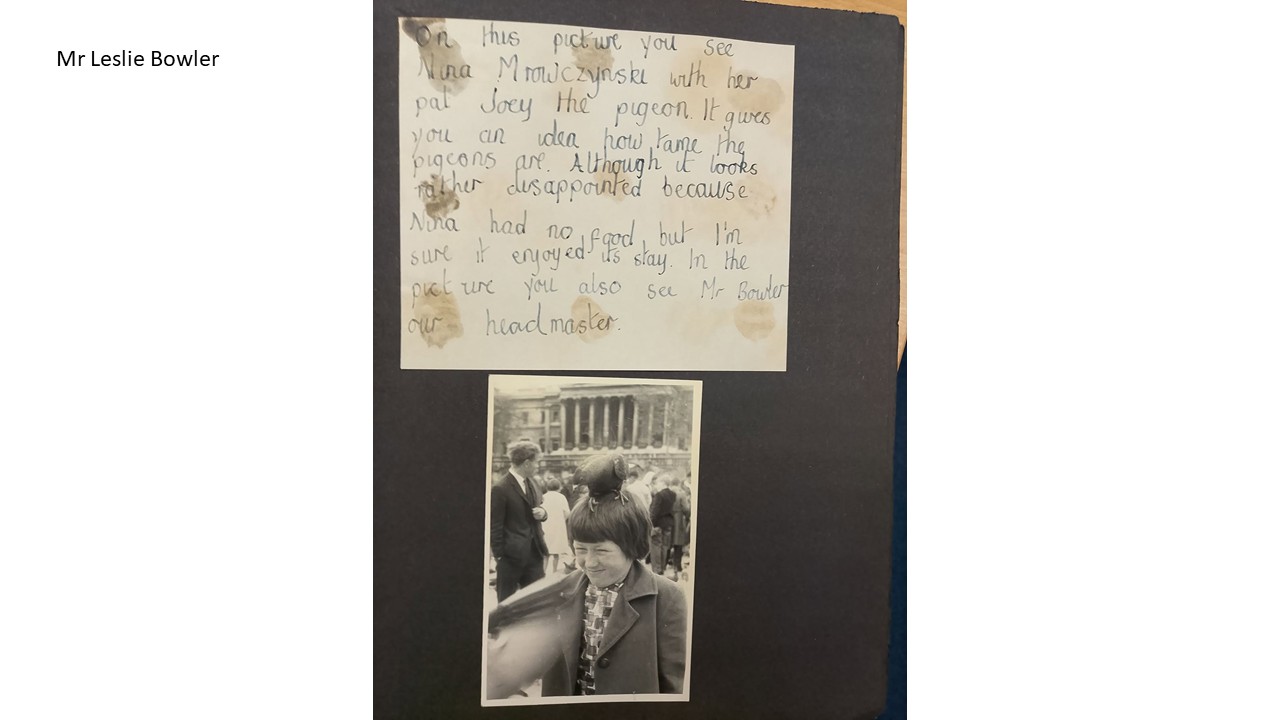 Mr Leslie Bowler
On this picture you see
Nina Mrowczynski with her
pal Joey the pigeon. It gives
you an idea how tame the
pigeons are. Although it looks
rather disappointed because
Nina had no food but I'm
sure it enjoyed its stay. In the
picture you also see Mr Bowler
our headmaster.